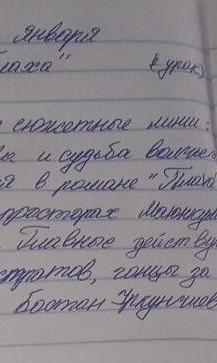 января
лаха"
(2 урок)
сюжетные линии:
и судьба волчей
я в романе "Плаха
просторах Моюнкум
Главные действу
стратов, гонцы за
Бостан Уркунчиев